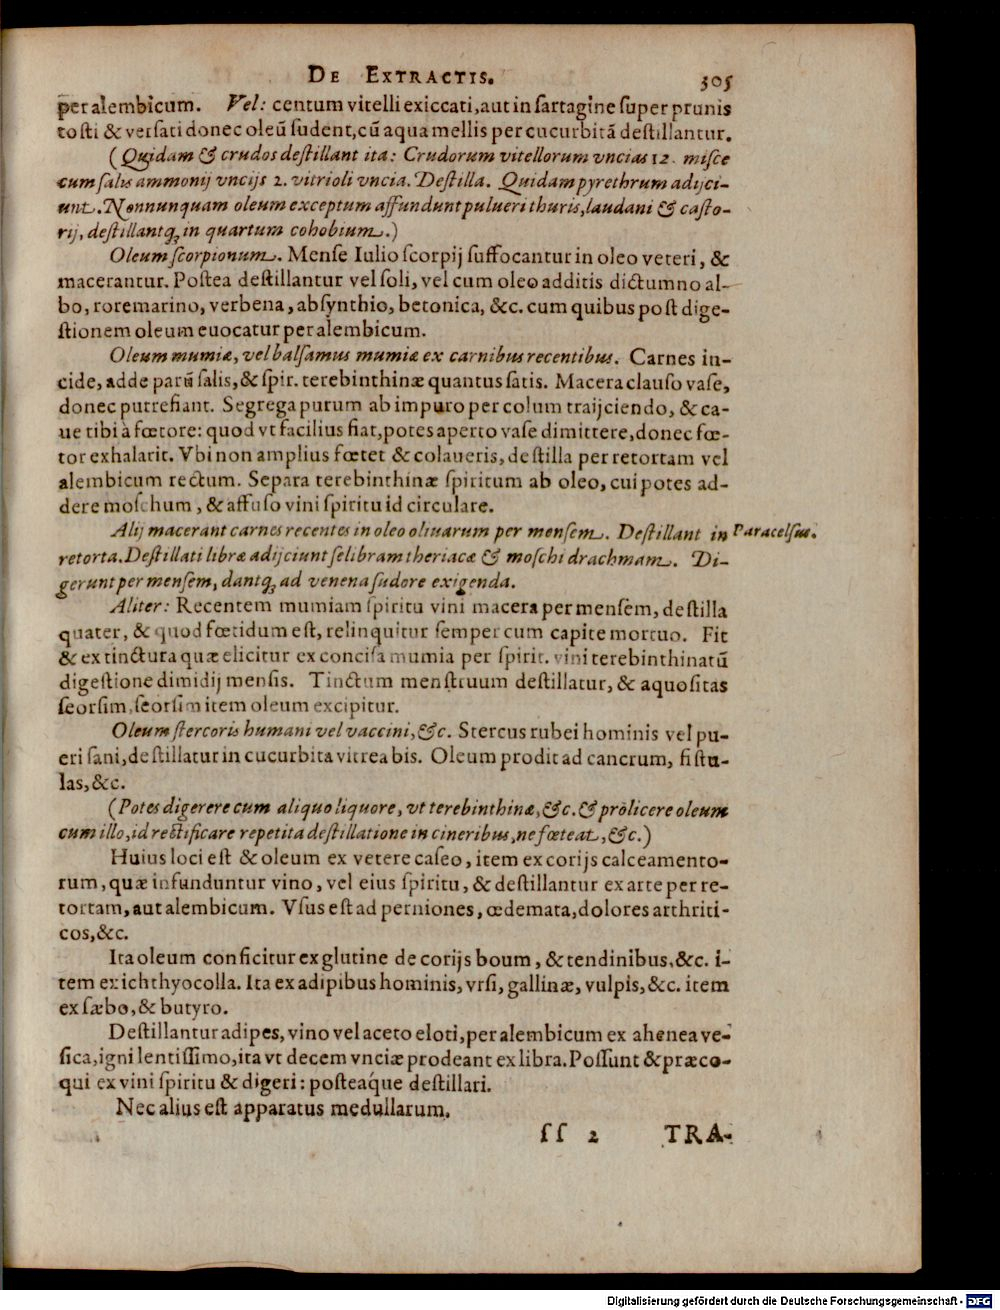 DE EXTRACTIS. 305
per alembicum. Vel: centum vitelli exiccati, aut in sartagine super prunis
tosti & versati donec oleū sudent, cū aqua mellis per cucurbitā destillantur.
(Quidam & crudos destillant ita: Crudorum vitellorum vncias 12. misce
cum salis ammonij vncijs 2. vitrioli vncia. Destilla. Quidam pyrethrum adijci-
unt. Nonnunquam oleum exceptum affundunt pulueri thuris, laudani & casto-
rij, destillantq́ in quartum cohobium.)
Oleum scorpionum. Mense Iulio scorpij suffocantur in oleo veteri, &
macerantur. Postea destillantur vel soli, vel cum oleo additis dictumno al-
bo, roremarino, verbena, absynthio, betonica, &c. cum quibus post dige-
stionem oleum euocatur per alembicum.
Oleum mumiæ, vel balsamus mumiæ ex carnibus recentibus. Carnes in-
cide, adde parū salis, & spir. terebinthinæ quantus satis. Macera clauso vase,
donec putrefiant. Segrega purum ab impuro per colum traijciendo, & ca-
ue tibi à fœtore: quod vt facilius fiat, potes aperto vase dimittere, donec fœ-
tor exhalarit. Vbi non amplius fœtet & colaueris, destilla per retortam vel
alembicum rectum. Separa terebinthinæ spiritum ab oleo, cui potes ad-
dere moschum, & affuso vini spiritu id circulare.
Alij macerant carnes recentes in oleo oliuarum per mensem. Destillant in Paracelsus.
retorta. Destillati libræ adijciunt selibram theriacæ & moschi drachmam. Di-
gerunt per mensem, dantq́ ad venena sudore exigenda.
Aliter: Recentem mumiam spiritu vini macera per mensem, destilla
quater, & quod fœtidum est, relinquitur semper cum capite mortuo. Fit
& ex tinctura quæ elicitur ex concisa mumia per spirit. vini terebinthinatū
digestione dimidij mensis. Tinctum menstruum destillatur, & aquositas
seorsim, seorsim item oleum excipitur.
Oleum stercoris humani vel vaccini, &c. Stercus rubei hominis vel pu-
eri sani, destillatur in cucurbita vitrea bis. Oleum prodit ad cancrum, fistu-
las, &c.
(Potes digerere cum aliquo liquore, vt terebinthina, &c. & prolicere oleum
cum illo, id rectificare repetita destillatione in cineribus, ne fœteat, &c.)
Huius loci est & oleum ex vetere caseo, item ex corijs calceamento-
rum, quæ infunduntur vino, vel eius spiritu, & destillantur ex arte per re-
tortam, aut alembicum. Vsus est ad perniones, œdemata, dolores arthriti-
cos, &c.
Ita oleum conficitur ex glutine de corijs boum, & tendinibus, &c. i-
tem ex ichthyocolla. Ita ex adipibus hominis, vrsi, gallinæ, vulpis, &c. item
ex sæbo, & butyro.
Destillantur adipes, vino vel aceto eloti, per alembicum ex ahenea ve-
sica, igni lentissimo, ita vt decem vnciæ prodeant ex libra. Possunt & præco-
qui ex vini spiritu & digeri: posteaque destillari.
Nec alius est apparatus medullarum.
ss 2 TRA-
Digitalisierung gefördert durch die Deutsche Forschungsgemeinschaft - DFG